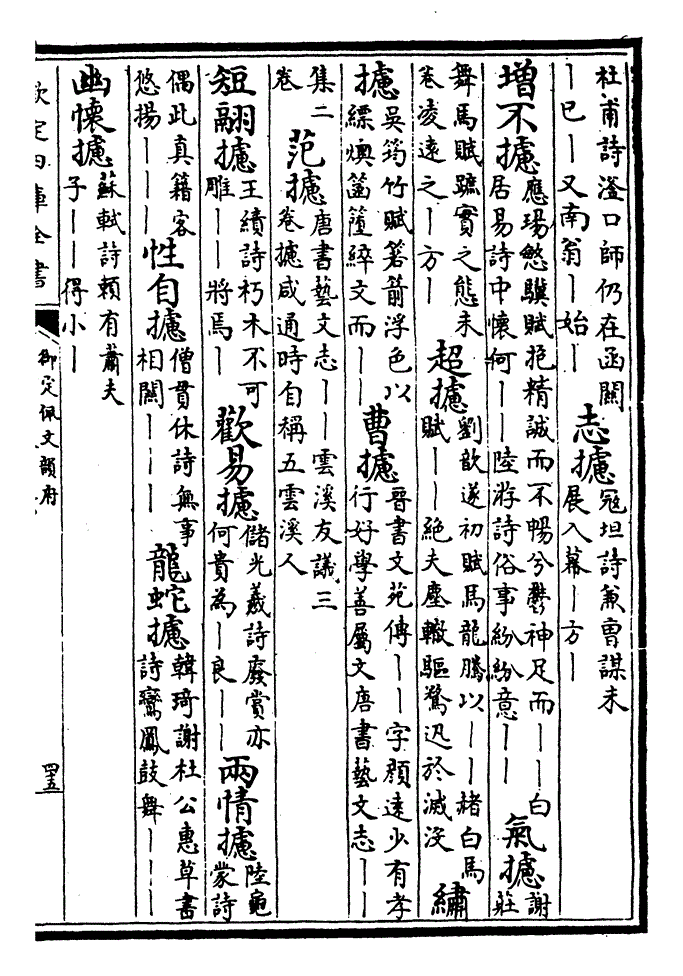 杜甫詩澄口師仍在函關
丨巳丨又南翁丨始丨
志攄
寇坦詩兼曹謀未
展入幕丨方丨
增不攄
應瑒慜驥賦抱精誠而不暢兮鬱神足而丨丨白
居易詩中懷何丨丨陸游詩俗事紛紛意丨丨
氣攄
謝
莊
舞馬賦蹠實之態未
卷凌遠之丨方丨
超攄
劉歆遂初賦馬龍騰以丨丨赭白馬
賦丨丨絕夫塵轍驅騖迅於滅没
繡
攄
吳筠竹賦箬箭浮色以
縹燠箘簬綷文而丨丨
曹攄
晉書文苑傳丨丨字顔遠少有孝
行好學善屬文唐書藝文志丨丨
集二
卷
范攄
唐書藝文志丨丨雲溪友議三
卷攄咸通時自稱五雲溪人
短翮攄
王績詩朽木不可
雕丨丨將焉丨
歡易攄
儲光羲詩廢賞亦
何貴為丨良丨丨
兩情攄
陸龜
蒙詩
偶此真籍客
悠揚丨丨丨
性自攄
僧貫休詩無事
相關丨丨丨
龍蛇攄
韓琦謝杜公惠草書
詩鸞鳳鼓舞丨丨丨
幽懷攄
蘇軾詩賴有蕭夫
子丨丨得小丨
欽定四庫全書
御定佩文韻府
四五